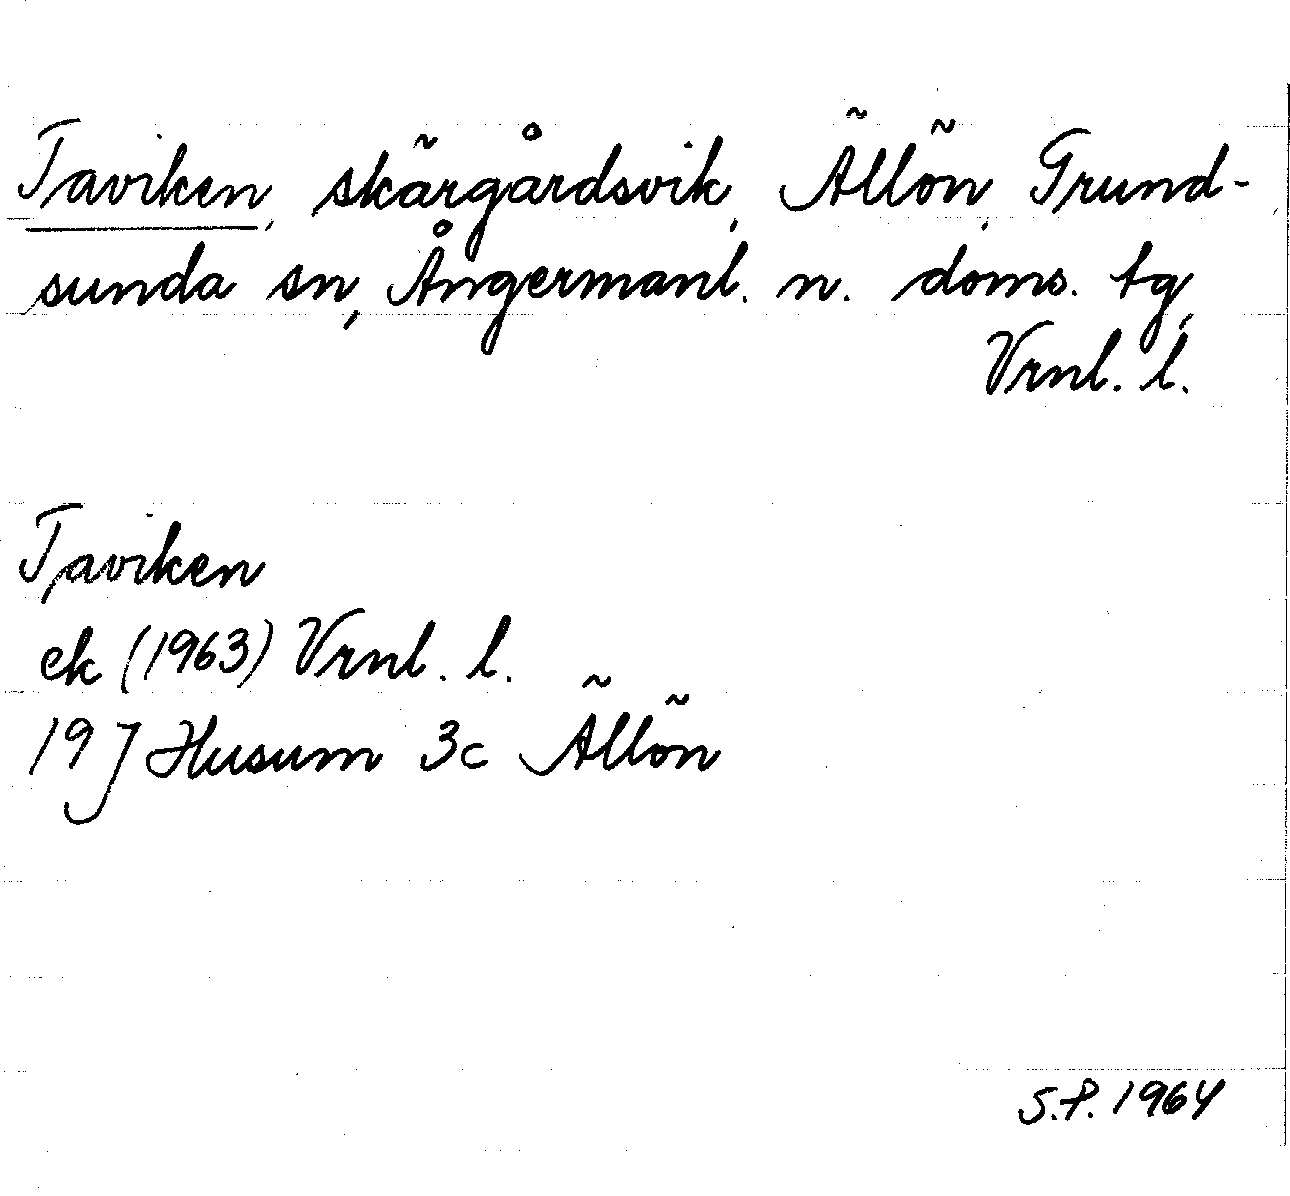 Taviken, skärgårdsvik, Ällön, Grund-
sunda sn, Ångermanl. n. doms. tg,
Vrnl. l.
Taviken
ek (1963) Vrnl. l.
19 J Husum 3c Ällön
S.P. 1964